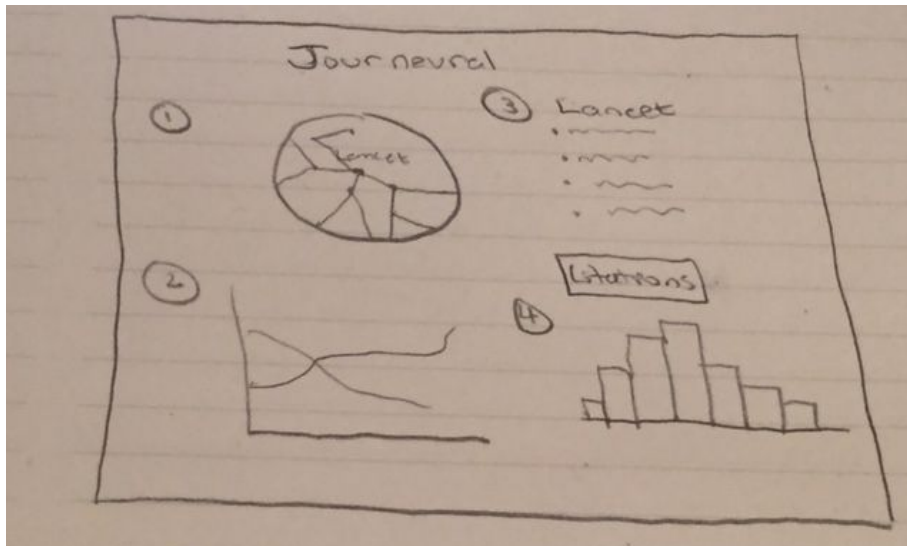 Journeural
1
Lancet
3 Lancet
2
Citations
4